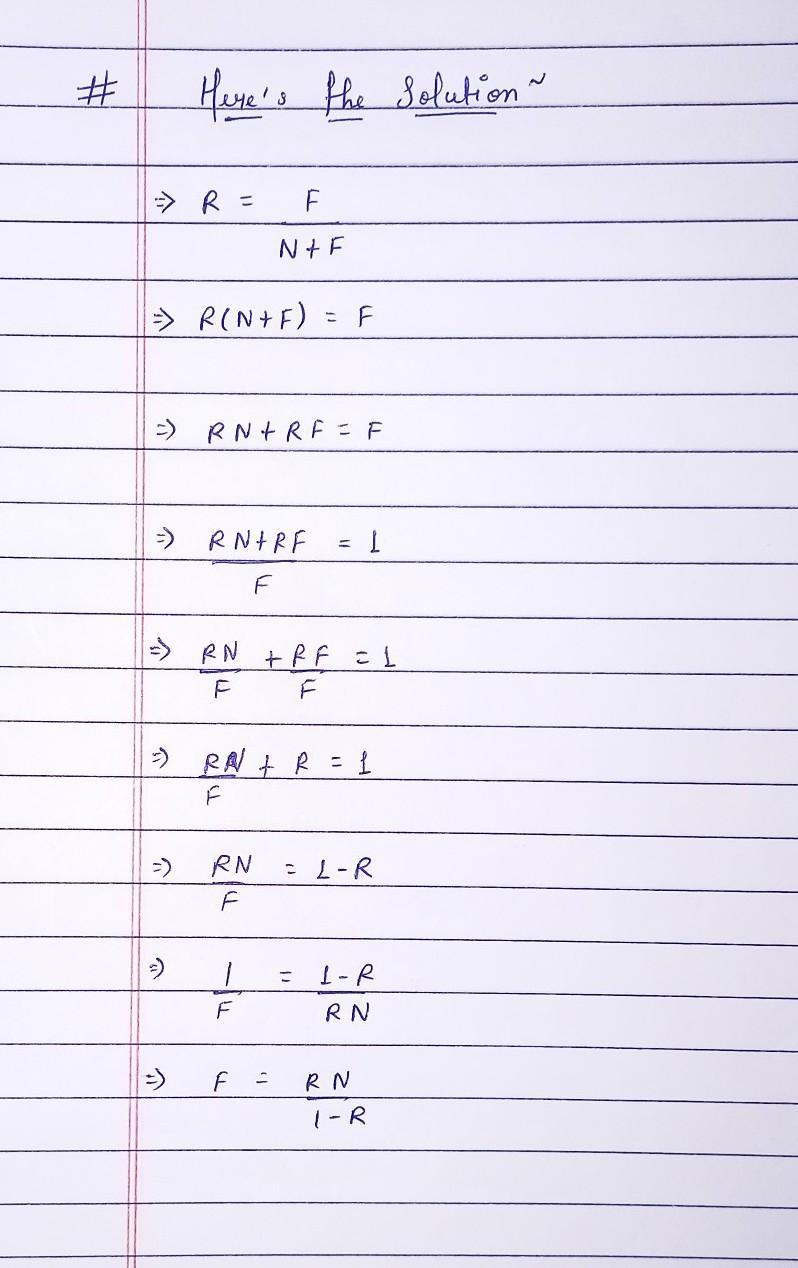 # Here's the Solution ~
⇒ R = F
N + F
⇒ R(N+F) = F
⇒ RN + RF = F
⇒ RN+RF = 1
F
⇒ RN + RF = 1
F F
⇒ RN + R = 1
F
⇒ RN = 1-R
F
⇒ 1 = 1-R
F RN
⇒ F = RN
1-R